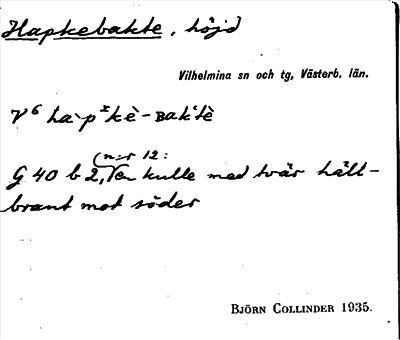 Hapkebakte, höjd
Vilhelmina sn och tg, Västerb. län.
V⁶ ha`pᵏkè-ʙakˈtè
(n:r 12:
G 40 b 2, en kulle med tvär häll-
brant mot söder
BJÖRN COLLINDER 1935.